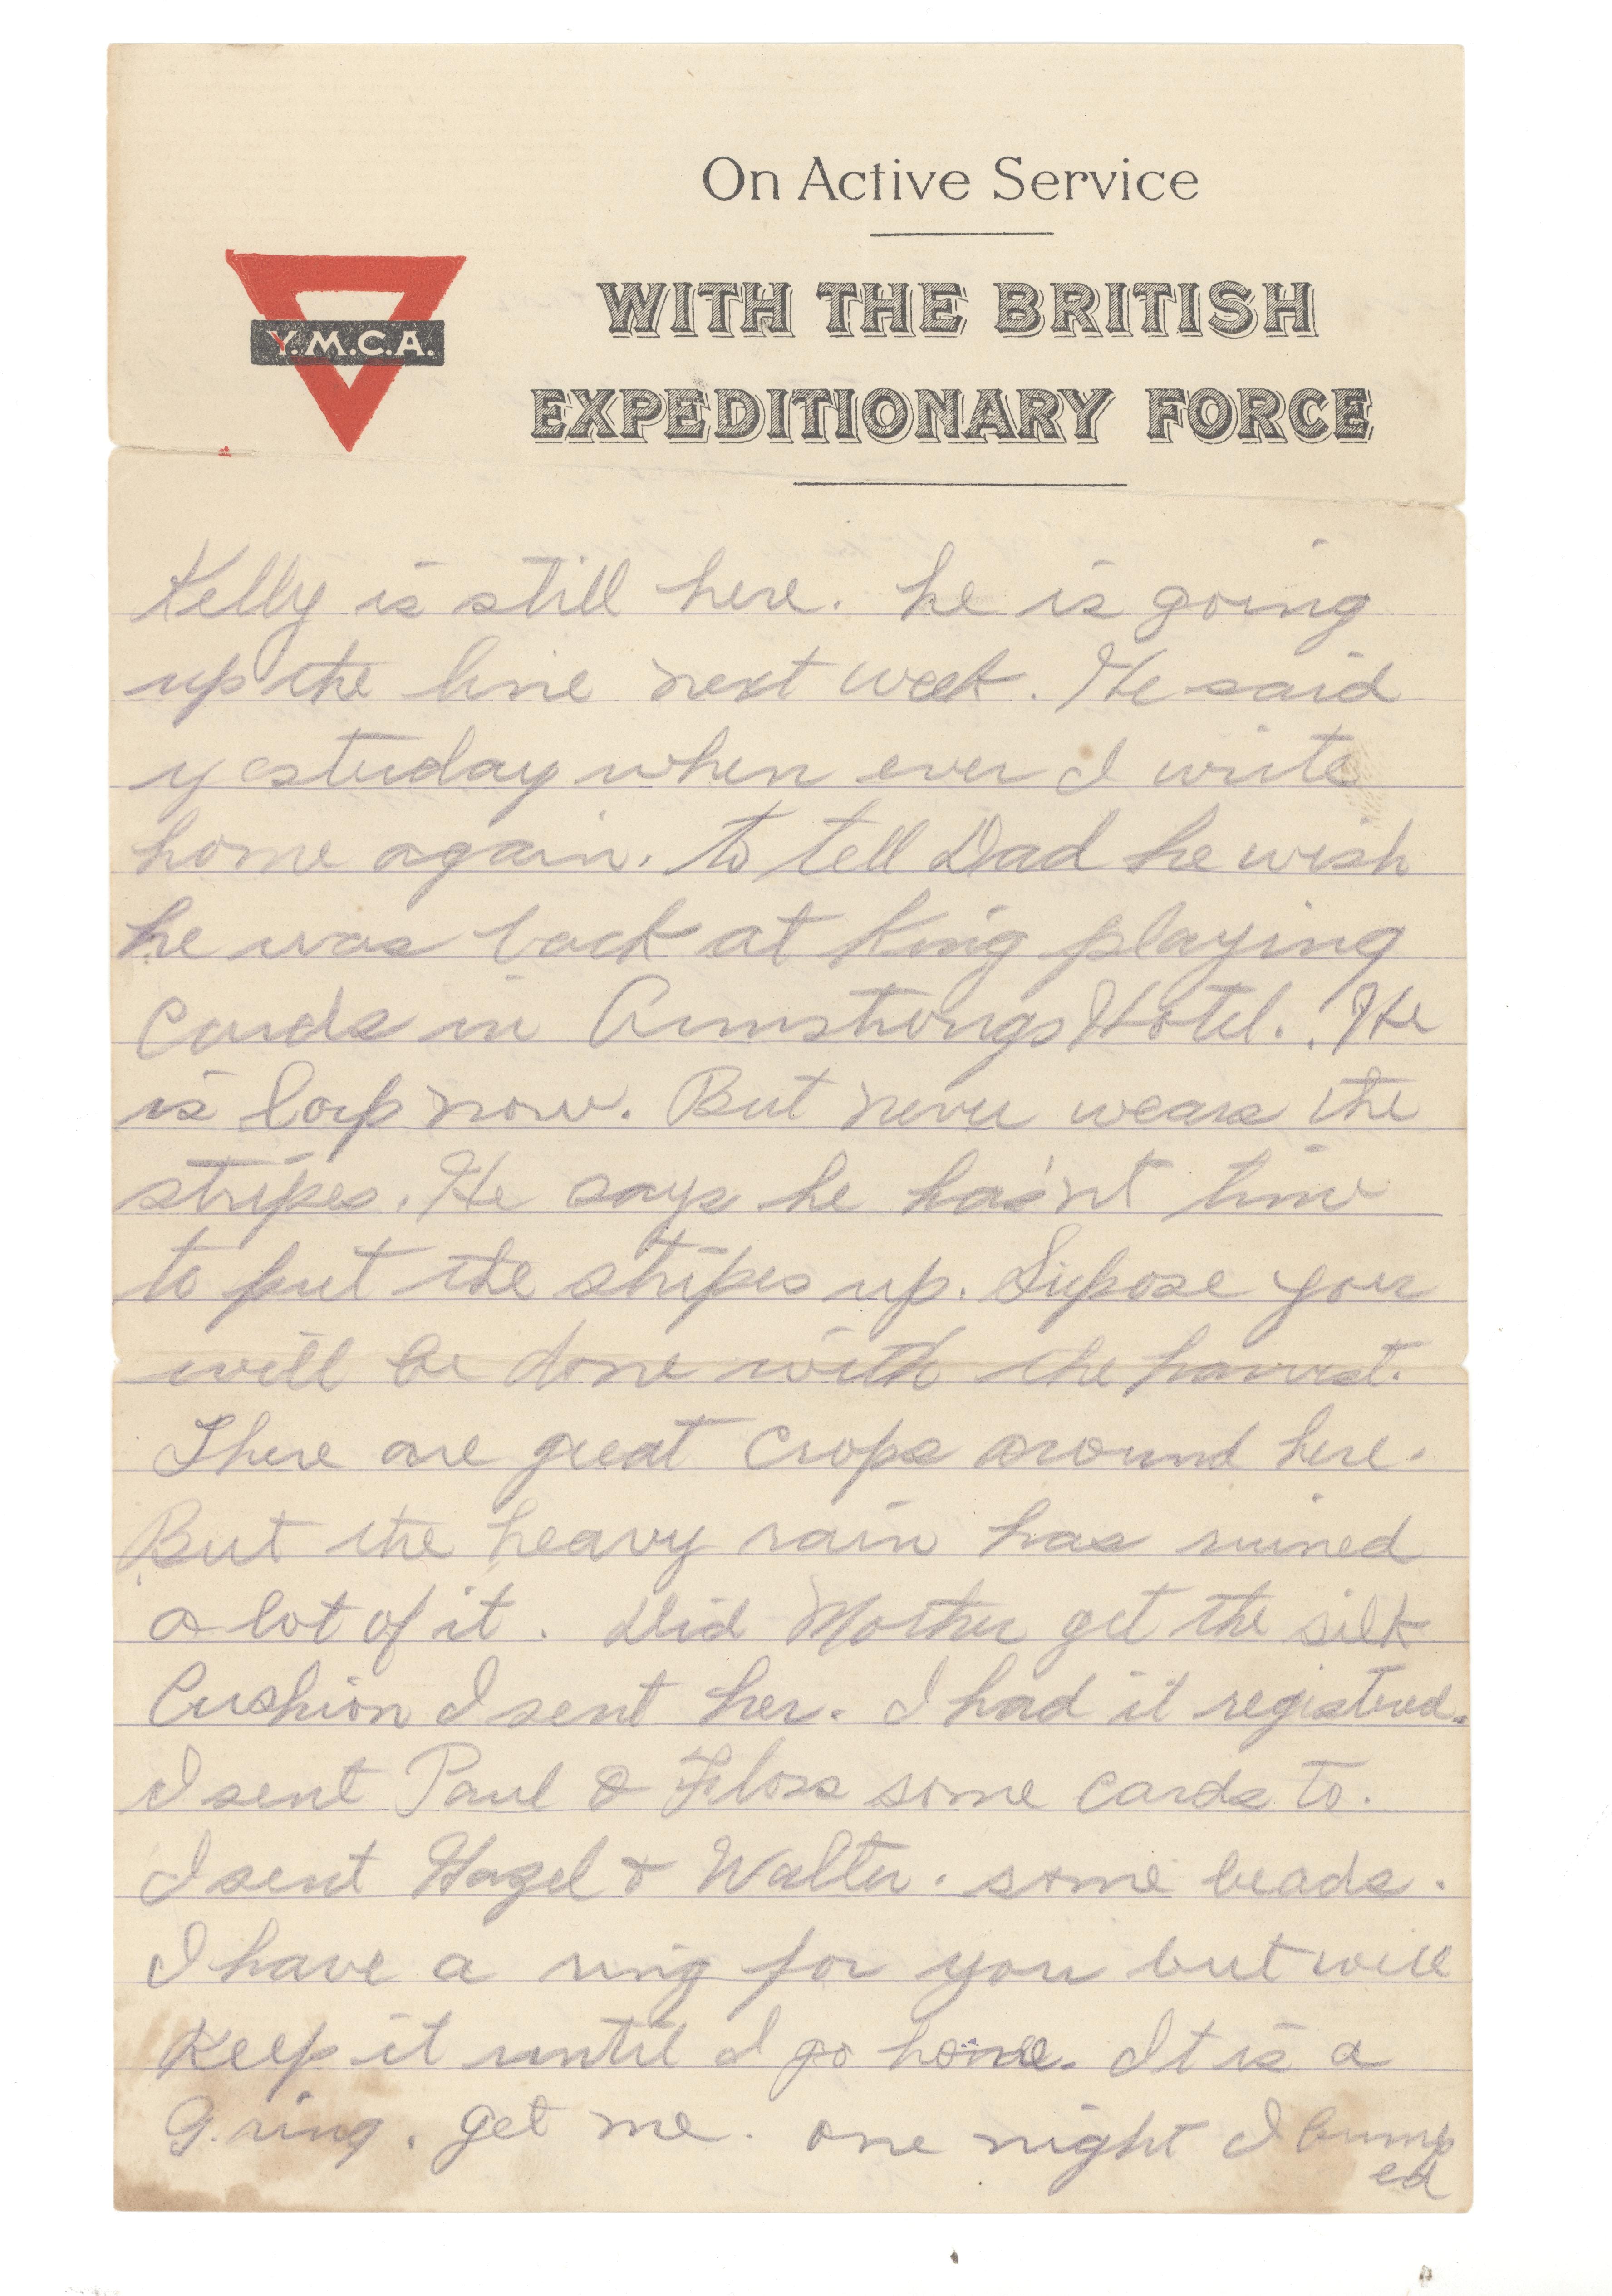 On Active Service
Y.M.C.A.
WITH THE BRITISH
EXPEDITIONARY FORCE
Kelly is still here. he is going
up the line next week. He said
yesterday when ever I write
home again. to tell Dad he wish
he was back at King playing
Cards in Armstrongs Hotel. He
is Corp now. But never wears the
stripes. He says he has'nt time
to put the stripes up. Supose you
will be done with the harvest.
There are great crops around here.
But the heavy rain has ruined
a lot of it. Did Mother get the silk
Cushion I sent her. I had it registered.
I sent Paul & Floss some cards to.
I sent Hazel & Walter. some beads.
I have a ring for you but will
Keep it until I go home. It is a
G. ring. get me. one night I bump
ed